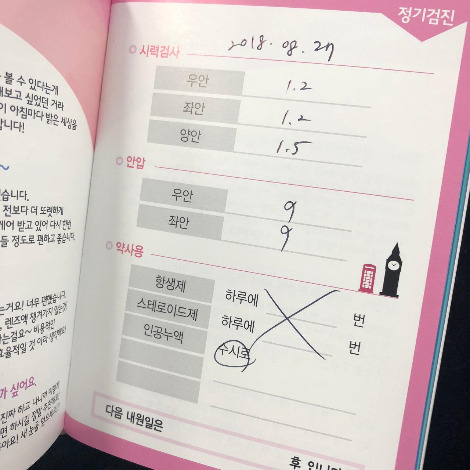 정기검진
시력검사 2018. 08. 27
우안 1.2
좌안 1.2
양안 1.5
안압
우안 9
좌안 9
약사용
항생제 하루에 번
스테로이드제 하루에 번
인공누액 수시로
다음 내원일은
후 입니다
볼 수 있다는게
해보고 싶었던 거라
이 아침마다 밝은 세상을
합니다!
전보다 더 또렷하게
케어 받고 있어 다시 한번
들 정도로 편하고 좋습니다.
는거요! 너무 편했습니다
가 싶어요.